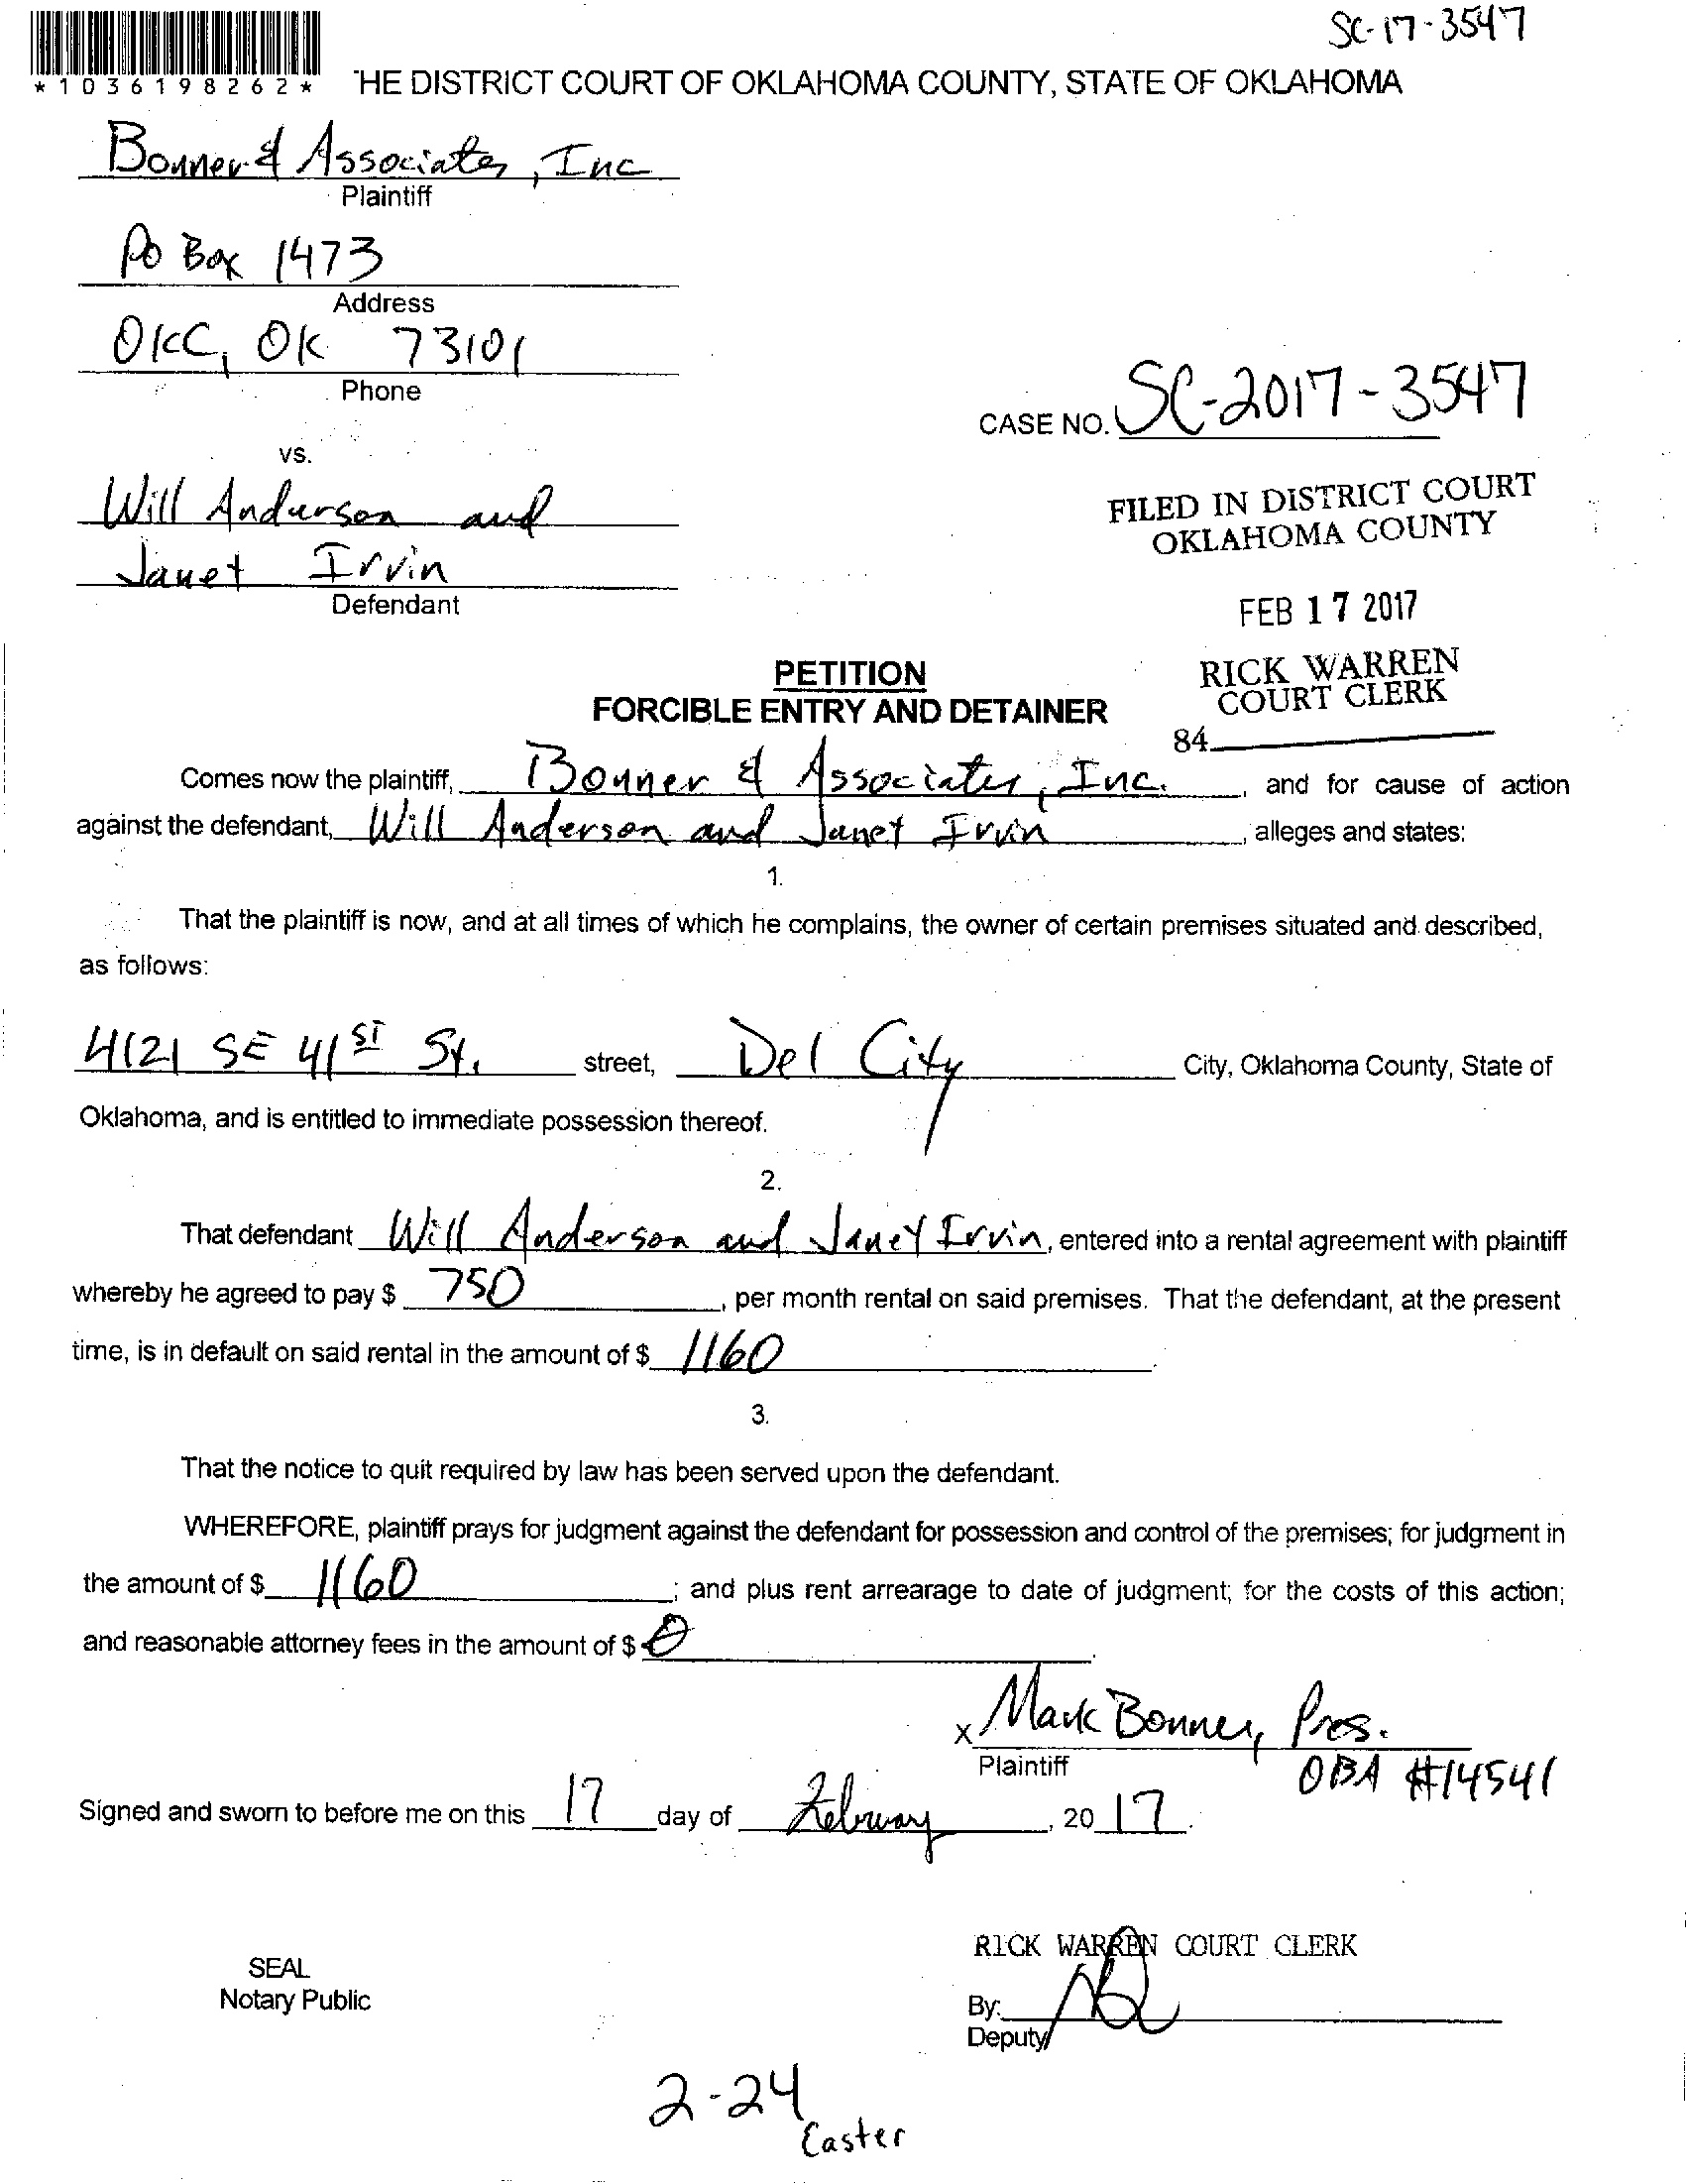 SC-17-3547
*1036198262*
THE DISTRICT COURT OF OKLAHOMA COUNTY, STATE OF OKLAHOMA
Bonner & Associates, Inc
Plaintiff
PO Box 1473
Address
OKC, OK 73101
Phone
CASE NO. SC-2017-3547
vs.
Will Anderson and
Janet Irvin
Defendant
FILED IN DISTRICT COURT
OKLAHOMA COUNTY
FEB 17 2017
RICK WARREN
COURT CLERK
84
PETITION
FORCIBLE ENTRY AND DETAINER
Comes now the plaintiff, Bonner & Associates, Inc. , and for cause of action
against the defendant, Will Anderson and Janet Irvin , alleges and states:
1.
That the plaintiff is now, and at all times of which he complains, the owner of certain premises situated and described,
as follows:
4121 SE 41ST St. street, Del City City, Oklahoma County, State of
Oklahoma, and is entitled to immediate possession thereof.
2.
That defendant Will Anderson and Janet Irvin, entered into a rental agreement with plaintiff
whereby he agreed to pay $ 750 , per month rental on said premises. That the defendant, at the present
time, is in default on said rental in the amount of $ 1160 .
3.
That the notice to quit required by law has been served upon the defendant.
WHEREFORE, plaintiff prays for judgment against the defendant for possession and control of the premises; for judgment in
the amount of $ 1160 ; and plus rent arrearage to date of judgment; for the costs of this action;
and reasonable attorney fees in the amount of $ 0 .
x Mark Bonner, Pres.
Plaintiff
OBA #14541
Signed and sworn to before me on this 17 day of February , 20 17 .
RICK WARREN COURT CLERK
SEAL
Notary Public
By:
Deputy
2-24
Easter